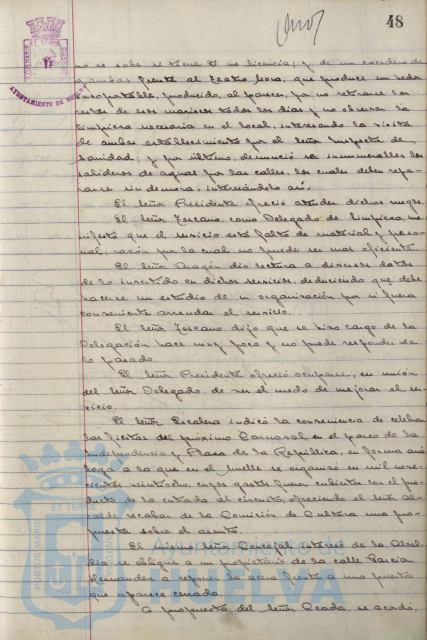 48
AYUNTAMIENTO DE HUELVA
no se sabe si tiene o no licencia; y de un cocedero de
gambas frente al Teatro Mora, que produce un hedor
insoportable, producido, al parecer, por no retirarse los
restos de esos mariscos todos los dias y no observar la
limpieza necesaria en el local, interesando la visita
de ambos establecimientos por el señor Inspector de
Sanidad; y por último, denunció ser innumerables los
salideros de aguas por las calles, los cuales deben repa-
rarse sin demora, interesándolo así.
El señor Presidente ofreció atender dichos ruegos.
El señor Toscano, como Delegado de Limpieza, ma-
nifestó que el servicio está falto de material y perso-
nal, razón por la cual no puede ser mas eficiente.
El señor Aragón dio lectura a diversos datos
de lo invertido en dichos servicios, deduciendo que debe
hacerse un estudio de su organización por si fuera
conveniente arrendar el servicio.
El señor Toscano dijo que se hizo cargo de la
Delegación hace muy poco y no puede responder de
lo pasado.
El señor Presidente ofreció ocuparse, en unión
del señor Delegado, de ver el modo de mejorar el ser-
vicio.
El señor Escalera indicó la conveniencia de celebrar
las fiestas del próximo Carnaval en el paseo de la
Independencia y Plaza de la República, en forma aná-
loga a la que en el Muelle se organizó en mil nove-
cientos veintiocho, cuyos gastos fueron cubiertos con el pro-
ducto de la entrada al circuito, ofreciendo el señor Al-
calde recabar de la Comisión de Cultura una pro-
puesta sobre el asunto.
El mismo señor Concejal interesó de la Alcal-
día se obligue a un propietario de la calle García
Hernández a reponer la acera frente a una puerta
que aparece cerrada.
A propuesta del señor Ceada, se acordó,
Ayuntamiento de
HUELVA